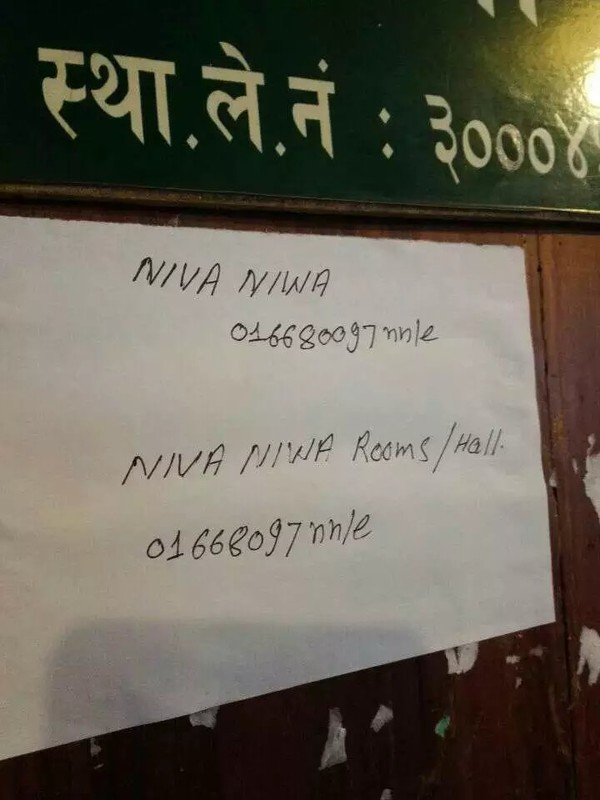 स्था.ले.नं : ३०००४५
NIVA NIWA
016680097nn/e
NIVA NIWA Rooms/Hall.
01668097nn/e